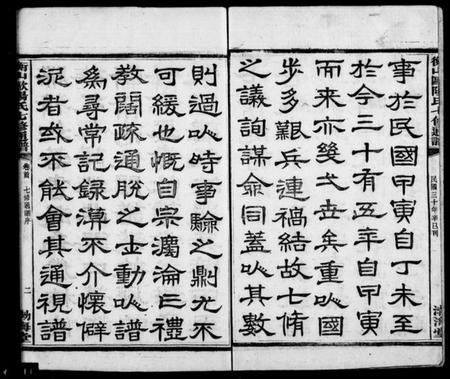 衡山歐陽氏七修通譜
民國三十年辛巳刊
事於民國甲寅自丁未至
於今三十有五年自甲寅
而來亦幾世矣重以國
步多艱兵連禍結故七脩
之議詢謀僉同蓋以其數
則過以時事驗之則尤不
可緩也慨自宗瀆淪亡禮
教闊疏通脫之士動以譜
為尋常記錄漠不介懷僻
泥者或不能會其通視譜
衡山歐陽氏七修通譜
卷首
七修通譜序
二
渤海堂